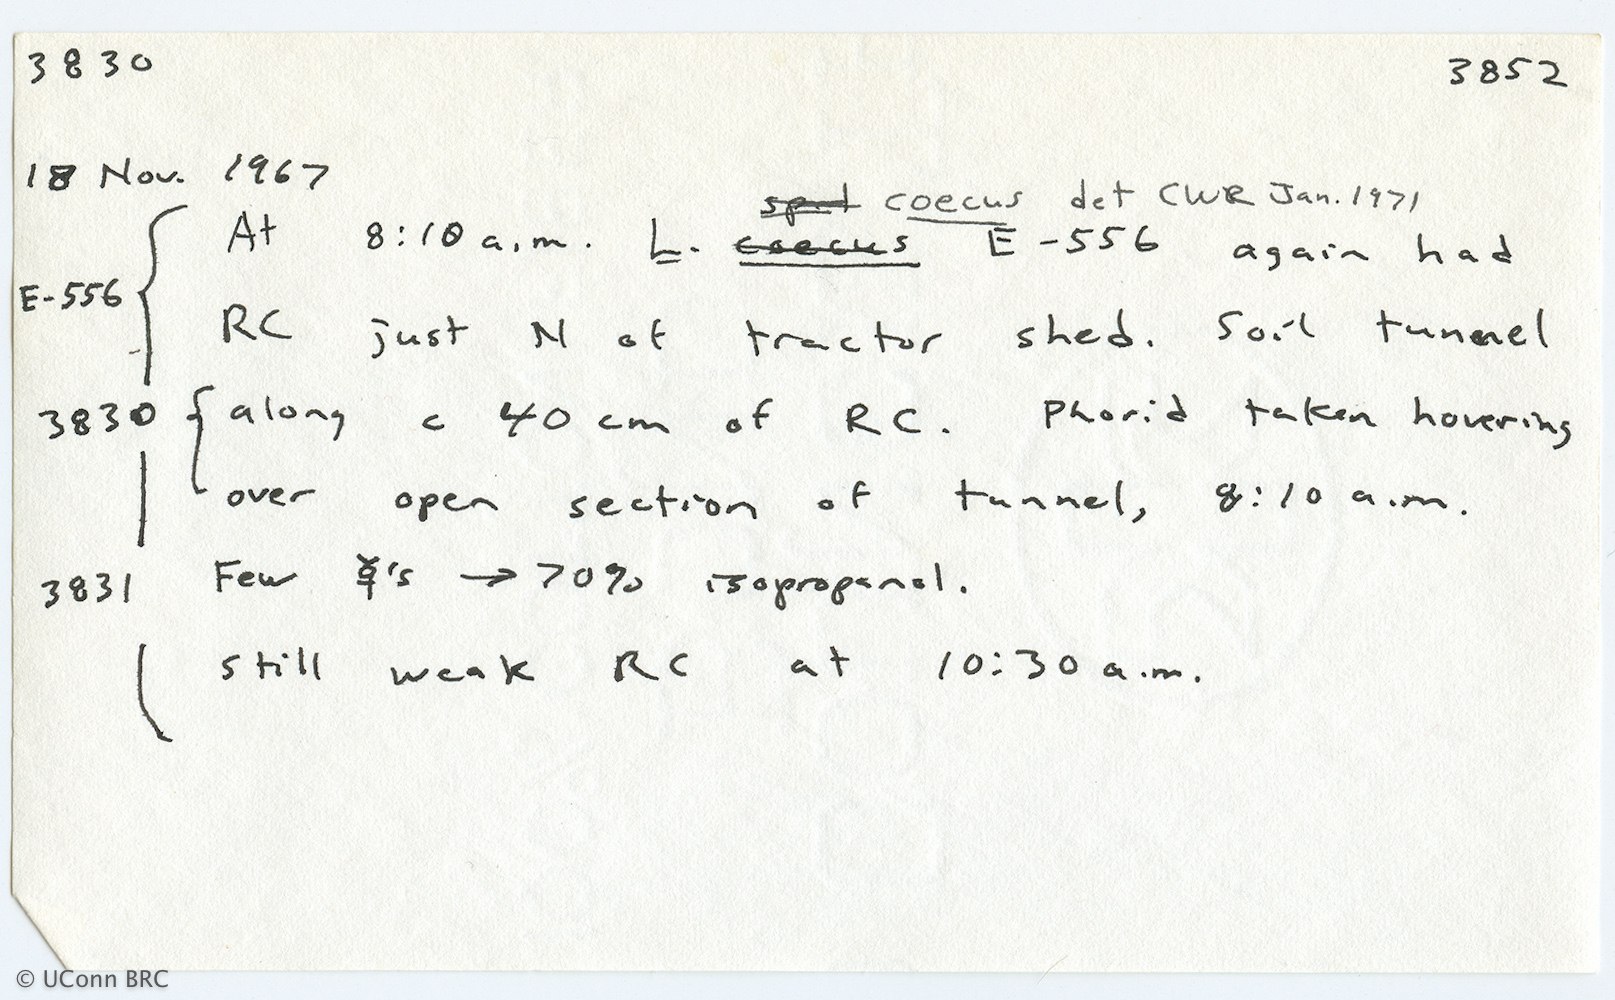 3830 3852
18 Nov. 1967
coecus det CWR Jan. 1971
At 8:10 a.m. L. coecus E-556 again had
E-556
RC just N of tractor shed. Soil tunnel
3830 along c 40 cm of RC. Phorid taken hovering
over open section of tunnel, 8:10 a.m.
3831 Few ☿'s → 70% isopropanol.
still weak RC at 10:30 a.m.
© UConn BRC